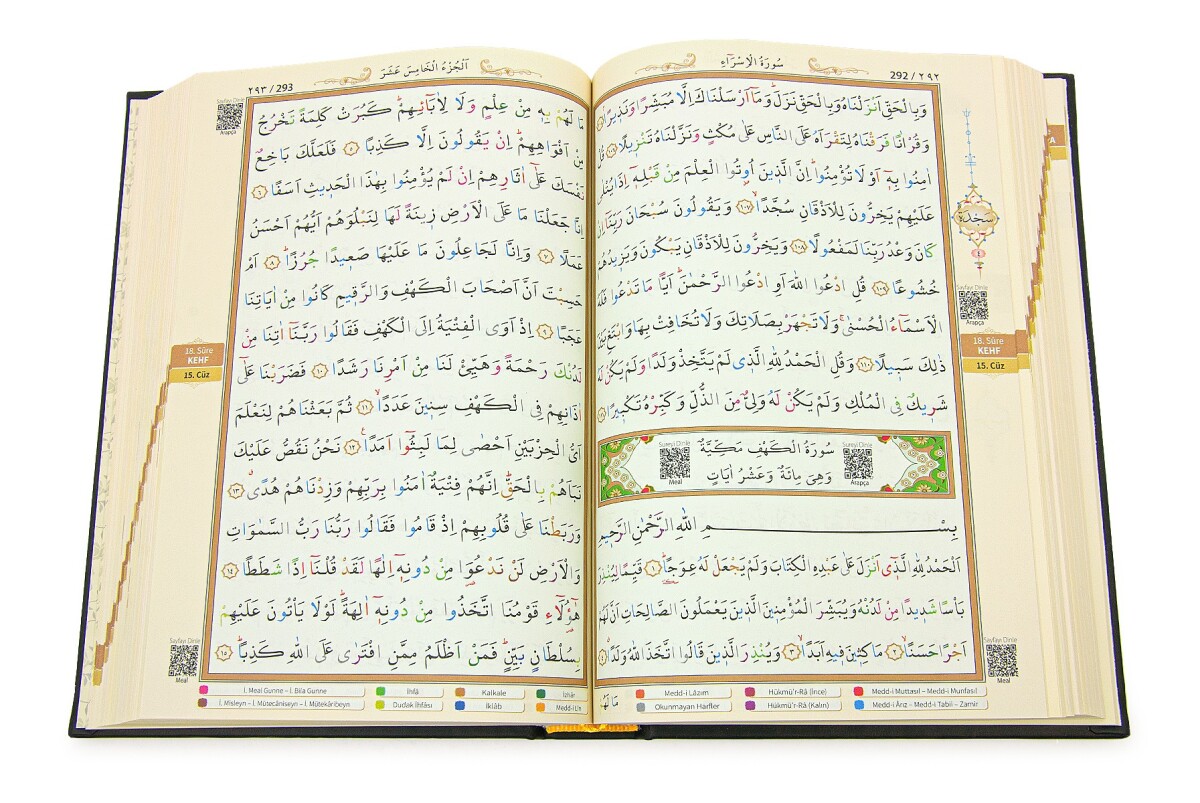 سُورَةُ الْاِسْرَٓاءِ
292 / ٢٩٢
وَبِالْحَقِّ اَنْزَلْنَاهُ وَبِالْحَقِّ نَزَلَۜ وَمَٓا اَرْسَلْنَاكَ اِلَّا مُبَشِّرًا وَنَذِيرًاۢ ﴿١٠٥﴾
وَقُرْاٰنًا فَرَقْنَاهُ لِتَقْرَاَهُ عَلَى النَّاسِ عَلٰى مُكْثٍ وَنَزَّلْنَاهُ تَنْزِيلًا ﴿١٠٦﴾ قُلْ
اٰمِنُوا بِهٖٓ اَوْ لَا تُؤْمِنُواۜ اِنَّ الَّذٖينَ اُو۫تُوا الْعِلْمَ مِنْ قَبْلِهٖٓ اِذَا يُتْلٰى
عَلَيْهِمْ يَخِرُّونَ لِلْاَذْقَانِ سُجَّدًاۙ ﴿١٠٧﴾ وَيَقُولُونَ سُبْحَانَ رَبِّنَٓا اِنْ
كَانَ وَعْدُ رَبِّنَا لَمَفْعُولًا ﴿١٠٨﴾ وَيَخِرُّونَ لِلْاَذْقَانِ يَبْكُونَ وَيَزٖيدُهُمْ
خُشُوعًا ﴿١٠٩﴾ قُلِ ادْعُوا اللّٰهَ اَوِ ادْعُوا الرَّحْمٰنَۜ اَيًّا مَا تَدْعُوا فَلَهُ
الْاَسْمَٓاءُ الْحُسْنٰىۚ وَلَا تَجْهَرْ بِصَلَاتِكَ وَلَا تُخَافِتْ بِهَا وَابْتَغِ بَيْنَ
ذٰلِكَ سَبٖيلًا ﴿١١٠﴾ وَقُلِ الْحَمْدُ لِلّٰهِ الَّذٖى لَمْ يَتَّخِذْ وَلَدًا وَلَمْ يَكُنْ لَهُ
شَرٖيكٌ فِى الْمُلْكِ وَلَمْ يَكُنْ لَهُ وَلِىٌّ مِنَ الذُّلِّ وَكَبِّرْهُ تَكْبٖيرًا ﴿١١١﴾
سُورَةُ الْكَهْفِ مَكِّيَّةٌ
وَهِىَ مِائَةٌ وَعَشْرُ اٰيَاتٍ
Sureyi Dinle
Meal
Sureyi Dinle
Arapça
بِسْمِ اللّٰهِ الرَّحْمٰنِ الرَّحٖيمِ
اَلْحَمْدُ لِلّٰهِ الَّذٖٓى اَنْزَلَ عَلٰى عَبْدِهِ الْكِتَابَ وَلَمْ يَجْعَلْ لَهُ عِوَجًاۜ ﴿١﴾ قَيِّمًا لِيُنْذِرَ
بَاْسًا شَدٖيدًا مِنْ لَدُنْهُ وَيُبَشِّرَ الْمُؤْمِنٖينَ الَّذٖينَ يَعْمَلُونَ الصَّالِحَاتِ اَنَّ لَهُمْ
اَجْرًا حَسَنًاۙ ﴿٢﴾ مَاكِثٖينَ فٖيهِ اَبَدًاۙ ﴿٣﴾ وَيُنْذِرَ الَّذٖينَ قَالُوا اتَّخَذَ اللّٰهُ وَلَدًاۗ ﴿٤﴾
مَا لَهُمْ
سَجْدَة
٤
Sayfayı Dinle
Arapça
18. Sûre
KEHF
15. Cüz
Sayfayı Dinle
Meal
Medd-i Lâzım
Hükmü'r-Râ (İnce)
Medd-i Muttasıl – Medd-i Munfasıl
Okunmayan Harfler
Hükmü'r-Râ (Kalın)
Medd-i Ârız – Medd-i Tabii – Zamir
اَلْجُزْءُ الْخَامِسَ عَشَرَ
٢٩٣ / 293
مَا لَهُمْ بِهٖ مِنْ عِلْمٍ وَلَا لِاٰبَٓائِهِمْۜ كَبُرَتْ كَلِمَةً تَخْرُجُ
مِنْ اَفْوَاهِهِمْۜ اِنْ يَقُولُونَ اِلَّا كَذِبًا ﴿٥﴾ فَلَعَلَّكَ بَاخِعٌ
نَفْسَكَ عَلٰٓى اٰثَارِهِمْ اِنْ لَمْ يُؤْمِنُوا بِهٰذَا الْحَدٖيثِ اَسَفًا ﴿٦﴾
اِنَّا جَعَلْنَا مَا عَلَى الْاَرْضِ زٖينَةً لَهَا لِنَبْلُوَهُمْ اَيُّهُمْ اَحْسَنُ
عَمَلًا ﴿٧﴾ وَاِنَّا لَجَاعِلُونَ مَا عَلَيْهَا صَعٖيدًا جُرُزًاۜ ﴿٨﴾ اَمْ
حَسِبْتَ اَنَّ اَصْحَابَ الْكَهْفِ وَالرَّقٖيمِ كَانُوا مِنْ اٰيَاتِنَا
عَجَبًا ﴿٩﴾ اِذْ اَوَى الْفِتْيَةُ اِلَى الْكَهْفِ فَقَالُوا رَبَّنَٓا اٰتِنَا مِنْ
لَدُنْكَ رَحْمَةً وَهَيِّئْ لَنَا مِنْ اَمْرِنَا رَشَدًا ﴿١٠﴾ فَضَرَبْنَا عَلٰٓى
اٰذَانِهِمْ فِى الْكَهْفِ سِنٖينَ عَدَدًاۙ ﴿١١﴾ ثُمَّ بَعَثْنَاهُمْ لِنَعْلَمَ
اَىُّ الْحِزْبَيْنِ اَحْصٰى لِمَا لَبِثُٓوا اَمَدًا۟ ﴿١٢﴾ نَحْنُ نَقُصُّ عَلَيْكَ
نَبَاَهُمْ بِالْحَقِّۜ اِنَّهُمْ فِتْيَةٌ اٰمَنُوا بِرَبِّهِمْ وَزِدْنَاهُمْ هُدًىۗ ﴿١٣﴾
وَرَبَطْنَا عَلٰى قُلُوبِهِمْ اِذْ قَامُوا فَقَالُوا رَبُّنَا رَبُّ السَّمٰوَاتِ
وَالْاَرْضِ لَنْ نَدْعُوَا مِنْ دُونِهٖٓ اِلٰهًا لَقَدْ قُلْنَٓا اِذًا شَطَطًا ﴿١٤﴾
هٰٓؤُ۬لَٓاءِ قَوْمُنَا اتَّخَذُوا مِنْ دُونِهٖٓ اٰلِهَةًۜ لَوْلَا يَاْتُونَ عَلَيْهِمْ
بِسُلْطَانٍ بَيِّنٍۜ فَمَنْ اَظْلَمُ مِمَّنِ افْتَرٰى عَلَى اللّٰهِ كَذِبًاۜ ﴿١٥﴾
Sayfayı Dinle
Arapça
18. Sûre
KEHF
15. Cüz
Sayfayı Dinle
Meal
İ. Meal Gunne – İ. Bila Gunne
İhfâ
Kalkale
İzhâr
İ. Misleyn – İ. Mütecâniseyn – İ. Mütekâribeyn
Dudak İhfâsı
İklâb
Medd-i Lîn